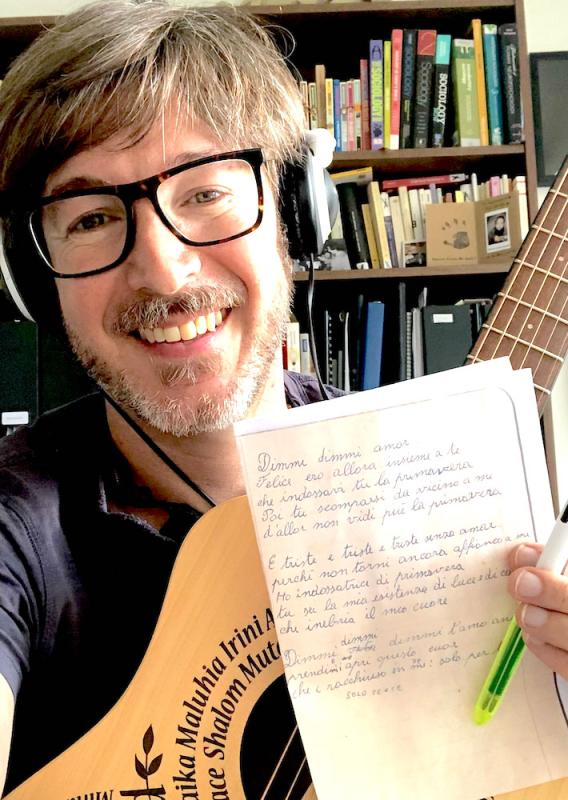 SOCIOLOGY
Sociology
SOCIOLOGY
Dimmi dimmi amor
Felice ero allora insieme a te
che indossavi tu la primavera
Poi tu scomparsi da vicino a me
d'allor non vidi più la primavera
E triste e triste e triste senza amor
perchè non torni ancora affianco a me
Mo indossatrice di primavera
tu se la mia esistenza di luce e di
che inebria il mio cuore
dimmi
Dimmi dimmi t'amo
prendi apri questo cuor
che è racchiuso in me: solo per
SOLO PER TE
aika Maluhia Irini
ace Shalom